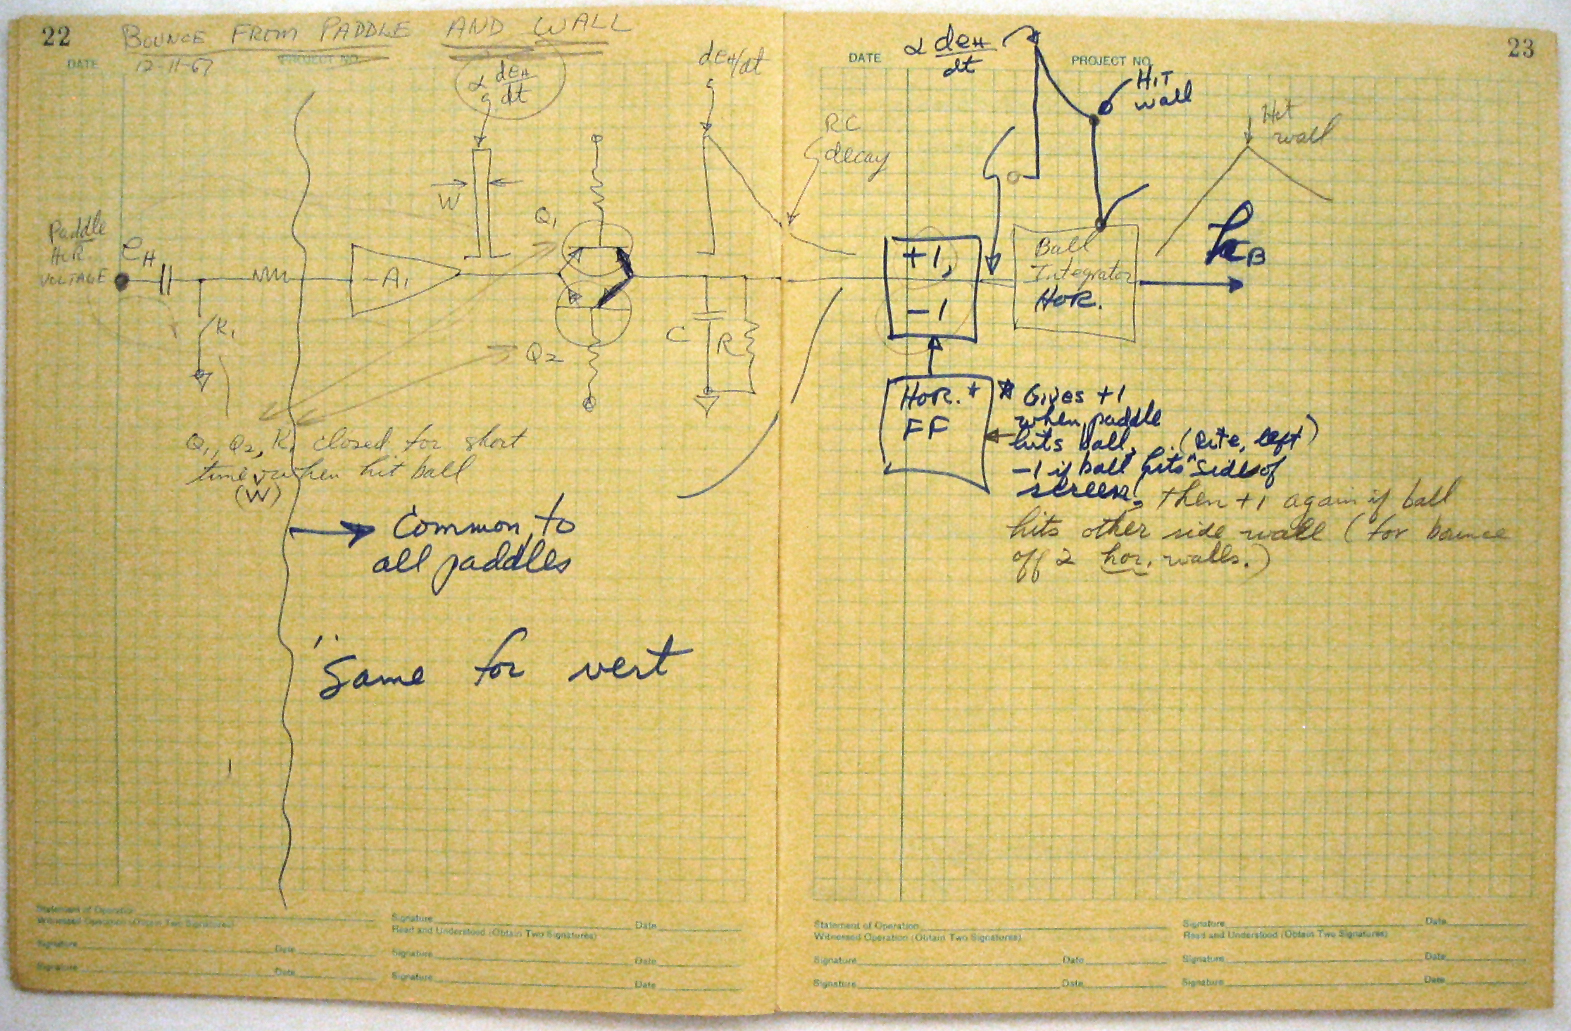 22
BOUNCE FROM PADDLE AND WALL
DATE
12-11-67
PROJECT NO.
α deH/dt
deH/dt
W
RC
decay
Paddle
HOR.
VOLTAGE
eH
K1
-A1
Q1
Q2
C
R
Q1, Q2, K1 closed for short
time when hit ball
(W)
Common to
all paddles
Same for vert
Statement of Operation
Witnessed Operation (Obtain Two Signatures)
Signature
Date
Signature
Date
Signature
Date
Read and Understood (Obtain Two Signatures)
Signature
Date
Signature
Date
23
DATE
α deH/dt
PROJECT NO.
HIT
wall
Hit
wall
+1,
-1
Ball
Integrator
HOR.
hB
HOR. *
FF
* Gives +1
when paddle
hits ball,
-1 if ball hits sides of (Rite, left)
screen, then +1 again if ball
hits other side wall (for bounce
off 2 hor. walls.)
Statement of Operation
Witnessed Operation (Obtain Two Signatures)
Signature
Date
Signature
Date
Signature
Date
Read and Understood (Obtain Two Signatures)
Signature
Date
Signature
Date